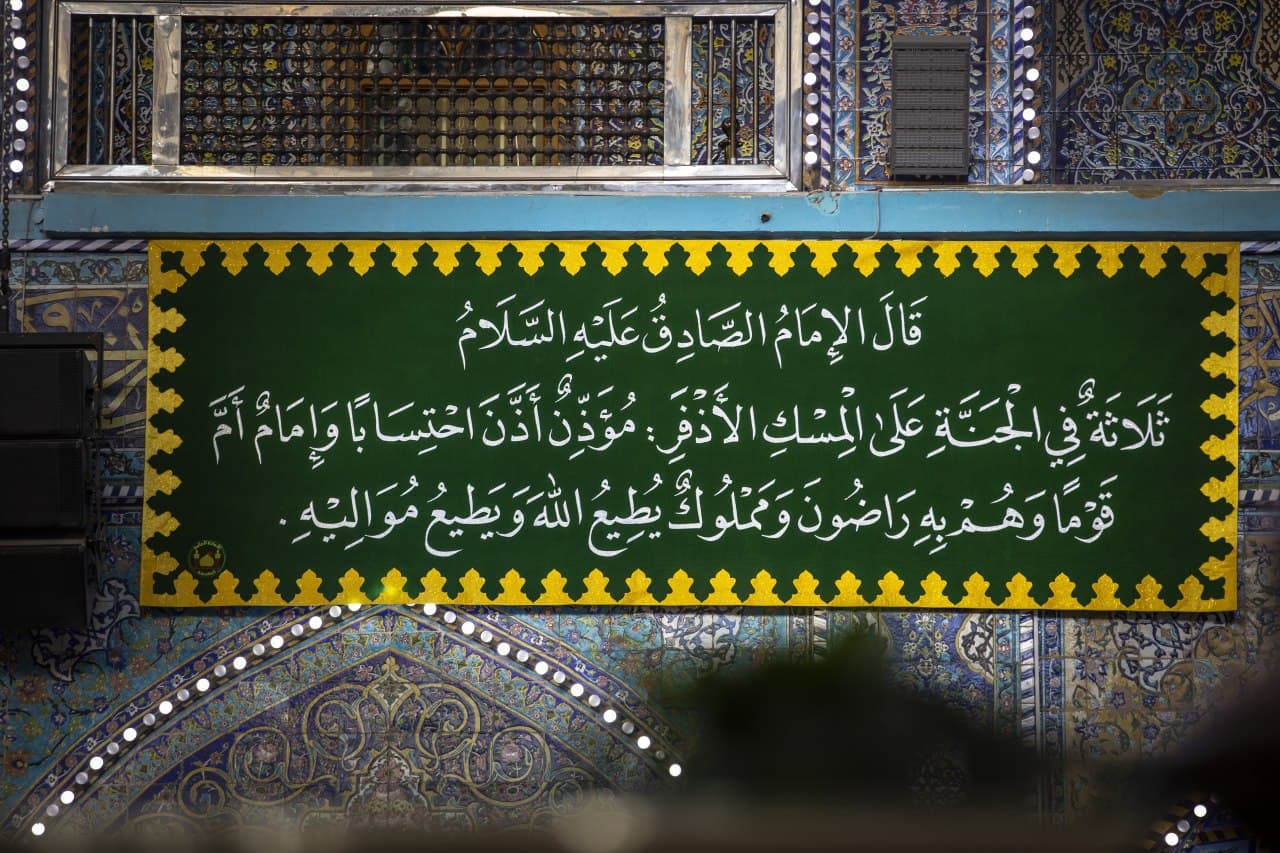 قَالَ الإِمَامُ الصَّادِقُ عَلَيْهِ السَّلَامُ
ثَلَاثَةٌ فِي الْجَنَّةِ عَلَىٰ الْمِسْكِ الأَذْفَرِ: مُؤَذِّنٌ أَذَّنَ احْتِسَابًا وَإِمَامٌ أَمَّ
قَوْمًا وَهُمْ بِهِ رَاضُونَ وَمَمْلُوكٌ يُطِيعُ اللهَ وَيَطِيعُ مُوَالِيْهِ.